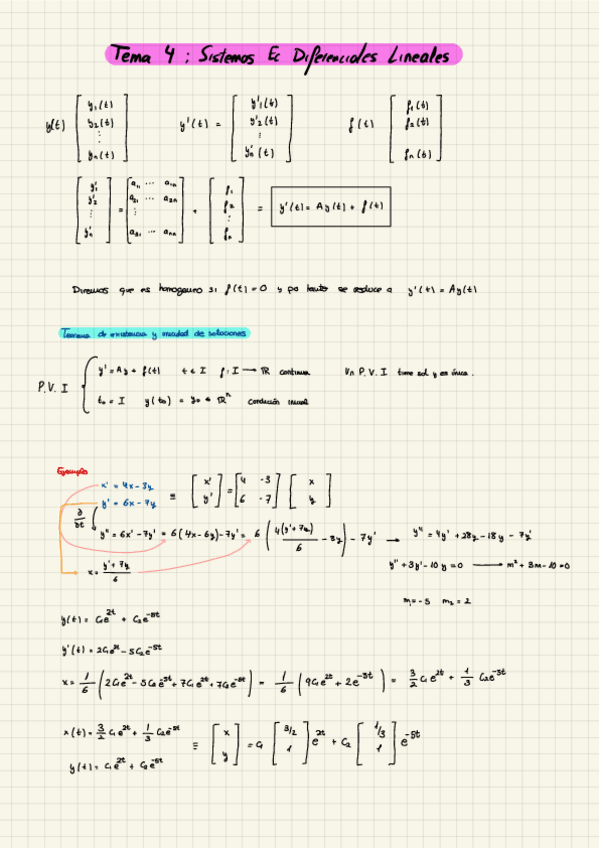 Tema 4 : Sistemas Ec Diferenciales Lineales
y(t) [ y₁(t) y₂(t) ⋮ yₙ(t) ] y'(t) = [ y'₁(t) y'₂(t) ⋮ y'ₙ(t) ] f(t) [ f₁(t) f₂(t) ⋮ fₙ(t) ]
[ y'₁ y'₂ ⋮ y'ₙ ] = [ a₁₁ ... a₁ₙ a₂₁ ... a₂ₙ ⋮ aₙ₁ ... aₙₙ ] + [ f₁ f₂ ⋮ fₙ ] = y'(t) = Ay(t) + f(t)
Diremos que es homogeneo si f(t) = 0 y por tanto se reduce a y'(t) = Ay(t)
Teorema de existencia y unicidad de soluciones
P.V.I { y' = Ay + f(t) t ∈ I f: I → ℝ continua Un P.V.I tiene sol y es única.
t₀ = I y(t₀) = y₀ ∈ ℝⁿ condición inicial
Ejemplo
x' = 4x - 3y
y' = 6x - 7y ≡ [ x' y' ] = [ 4 -3 6 -7 ] [ x y ]
∂/∂t ( y'' = 6x' - 7y' = 6(4x - 6y) - 7y' = 6 ( 4(y' + 7y)/6 - 3y ) - 7y' → y'' = 4y' + 28y - 18y - 7y'
x = y' + 7y / 6
y'' + 3y' - 10y = 0 → m² + 3m - 10 = 0
m₁ = -5 m₂ = 2
y(t) = C₁e^2t + C₂e^-5t
y'(t) = 2C₁e^2t - 5C₂e^-5t
x = 1/6 ( 2C₁e^2t - 5C₂e^-5t + 7C₁e^2t + 7C₂e^-5t ) = 1/6 ( 9C₁e^2t + 2e^-5t ) = 3/2 C₁e^2t + 1/3 C₂e^-5t
x(t) = 3/2 C₁e^2t + 1/3 C₂e^-5t
y(t) = C₁e^2t + C₂e^-5t ≡ [ x y ] = C₁ [ 3/2 1 ] e^2t + C₂ [ 1/3 1 ] e^-5t